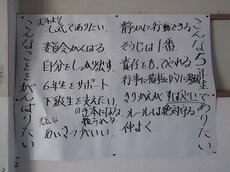 こんな5年生でありたい
静かに行動できる。
そうじは1番
責任をもってやれる
行事に積極的に参加
きりかえがすばやい
ルールは絶対守る
仲よく。
しっかりありたい。
委員会がんばる。
自分をしっかり出す。
6年生をサポート
下級生を支えたい。
手本になる
あいさつがいい。
こんなことをがんばりたい